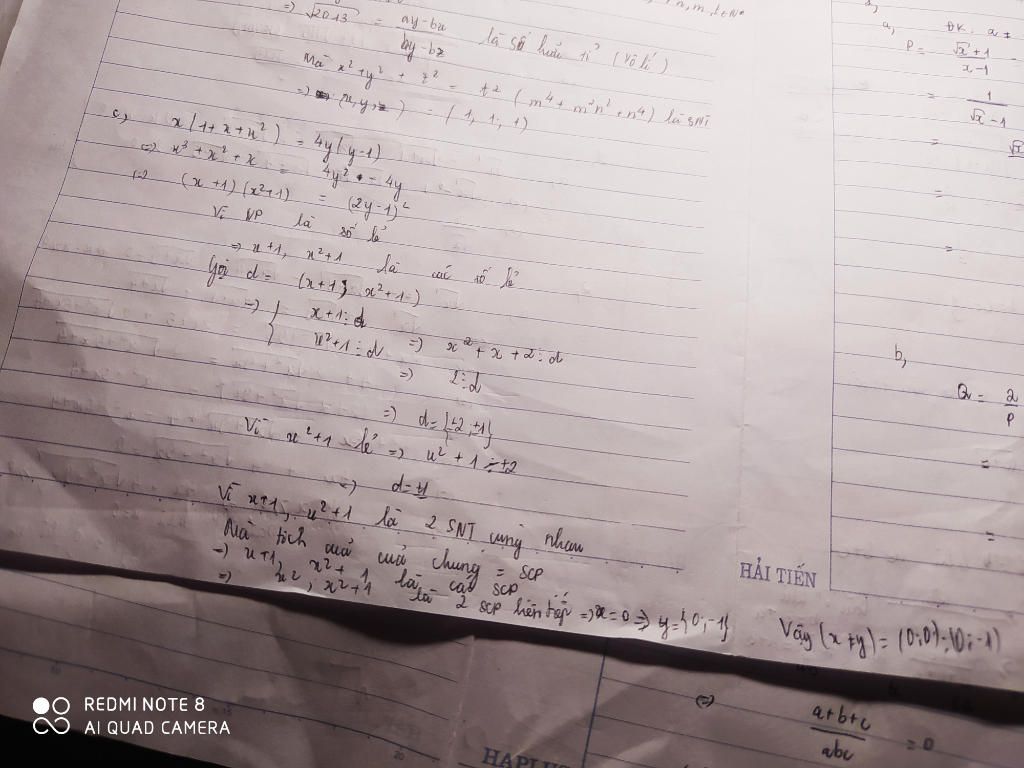 => √2013 = ay-bx / by-bz là số hữu tỉ (vô lí)
Mà x² + y² + z² = (m⁴ + m²n² + n⁴) là SNT
=> (x, y, z) = (1, 1, 1)
c, x(1+x+x²) = 4y(y-1)
=> x³ + x² + x = 4y² - 4y
(x+1)(x²+1) = (2y-1)²
Vì VP là số lẻ
=> x+1, x²+1 là các số lẻ
Gọi d = (x+1; x²+1)
=> { x+1⋮d
x²+1⋮d => x² + x + 2⋮d
=> 2⋮d
=> d = {±2, ±1}
Vì x²+1 lẻ => x²+1 ≠ ±2
=> d=±1
Vì x+1, x²+1 là 2 SNT cùng nhau
Mà tích của chúng = SCP
=> x+1, x²+1 là các SCP
=> x², x²+1 là 2 SCP liên tiếp => x=0 => y={0;-1}
Vậy (x;y) = (0;0);(0;-1)
HẢI TIẾN
a,
P = √x+1 / x-1
= 1 / √x-1
=
=
=
b,
Q = 2 / P
=
=
(=) a+b+c / abc = 0
REDMI NOTE 8
AI QUAD CAMERA